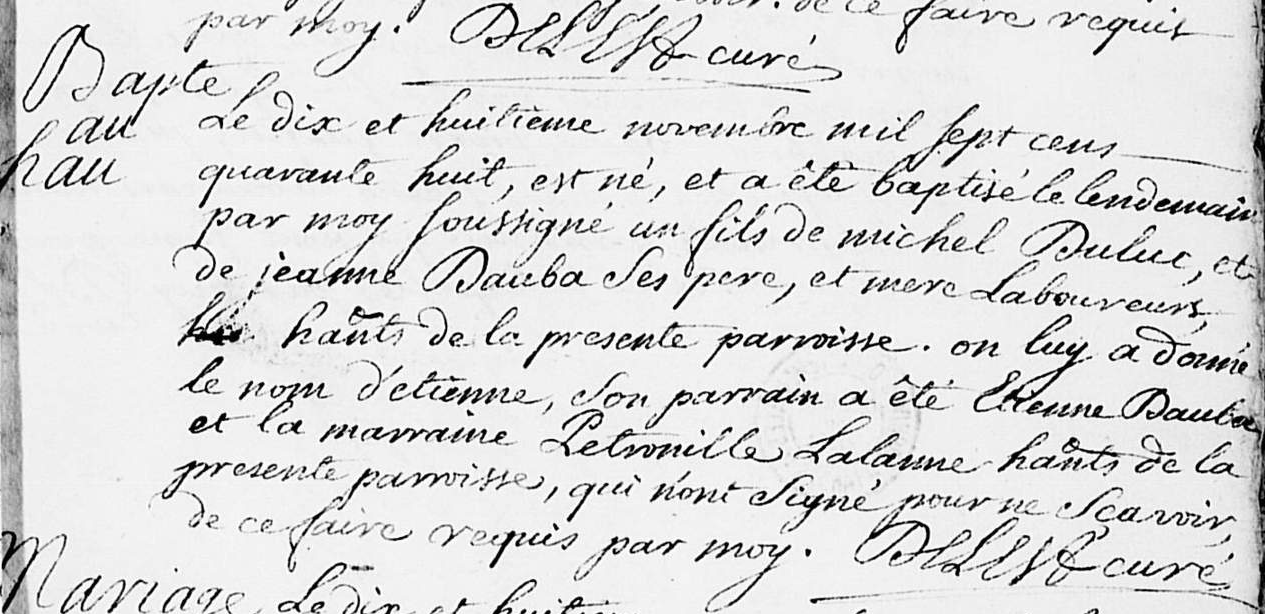 de ce faire requis
par moy. DELEST curé
Bapte
au
hau
Le dix et huitième novembre mil sept cens
quarante huit, est né, et a êtè baptisé le lendemain
par moy soussigné un fils de michel Duluc, et
de jeanne Dauba ses pere, et mere Laboureurs,
hañts de la presente parroisse. on luy a donné
le nom d'etienne, son parrain a êté Etienne Dauba
et la marraine Petronille Lalanne hañts de la
presente parroisse, qui n'ont signé pour ne sçavoir,
de ce faire requis par moy. DELEST curé
Mariage Le dix et huitième